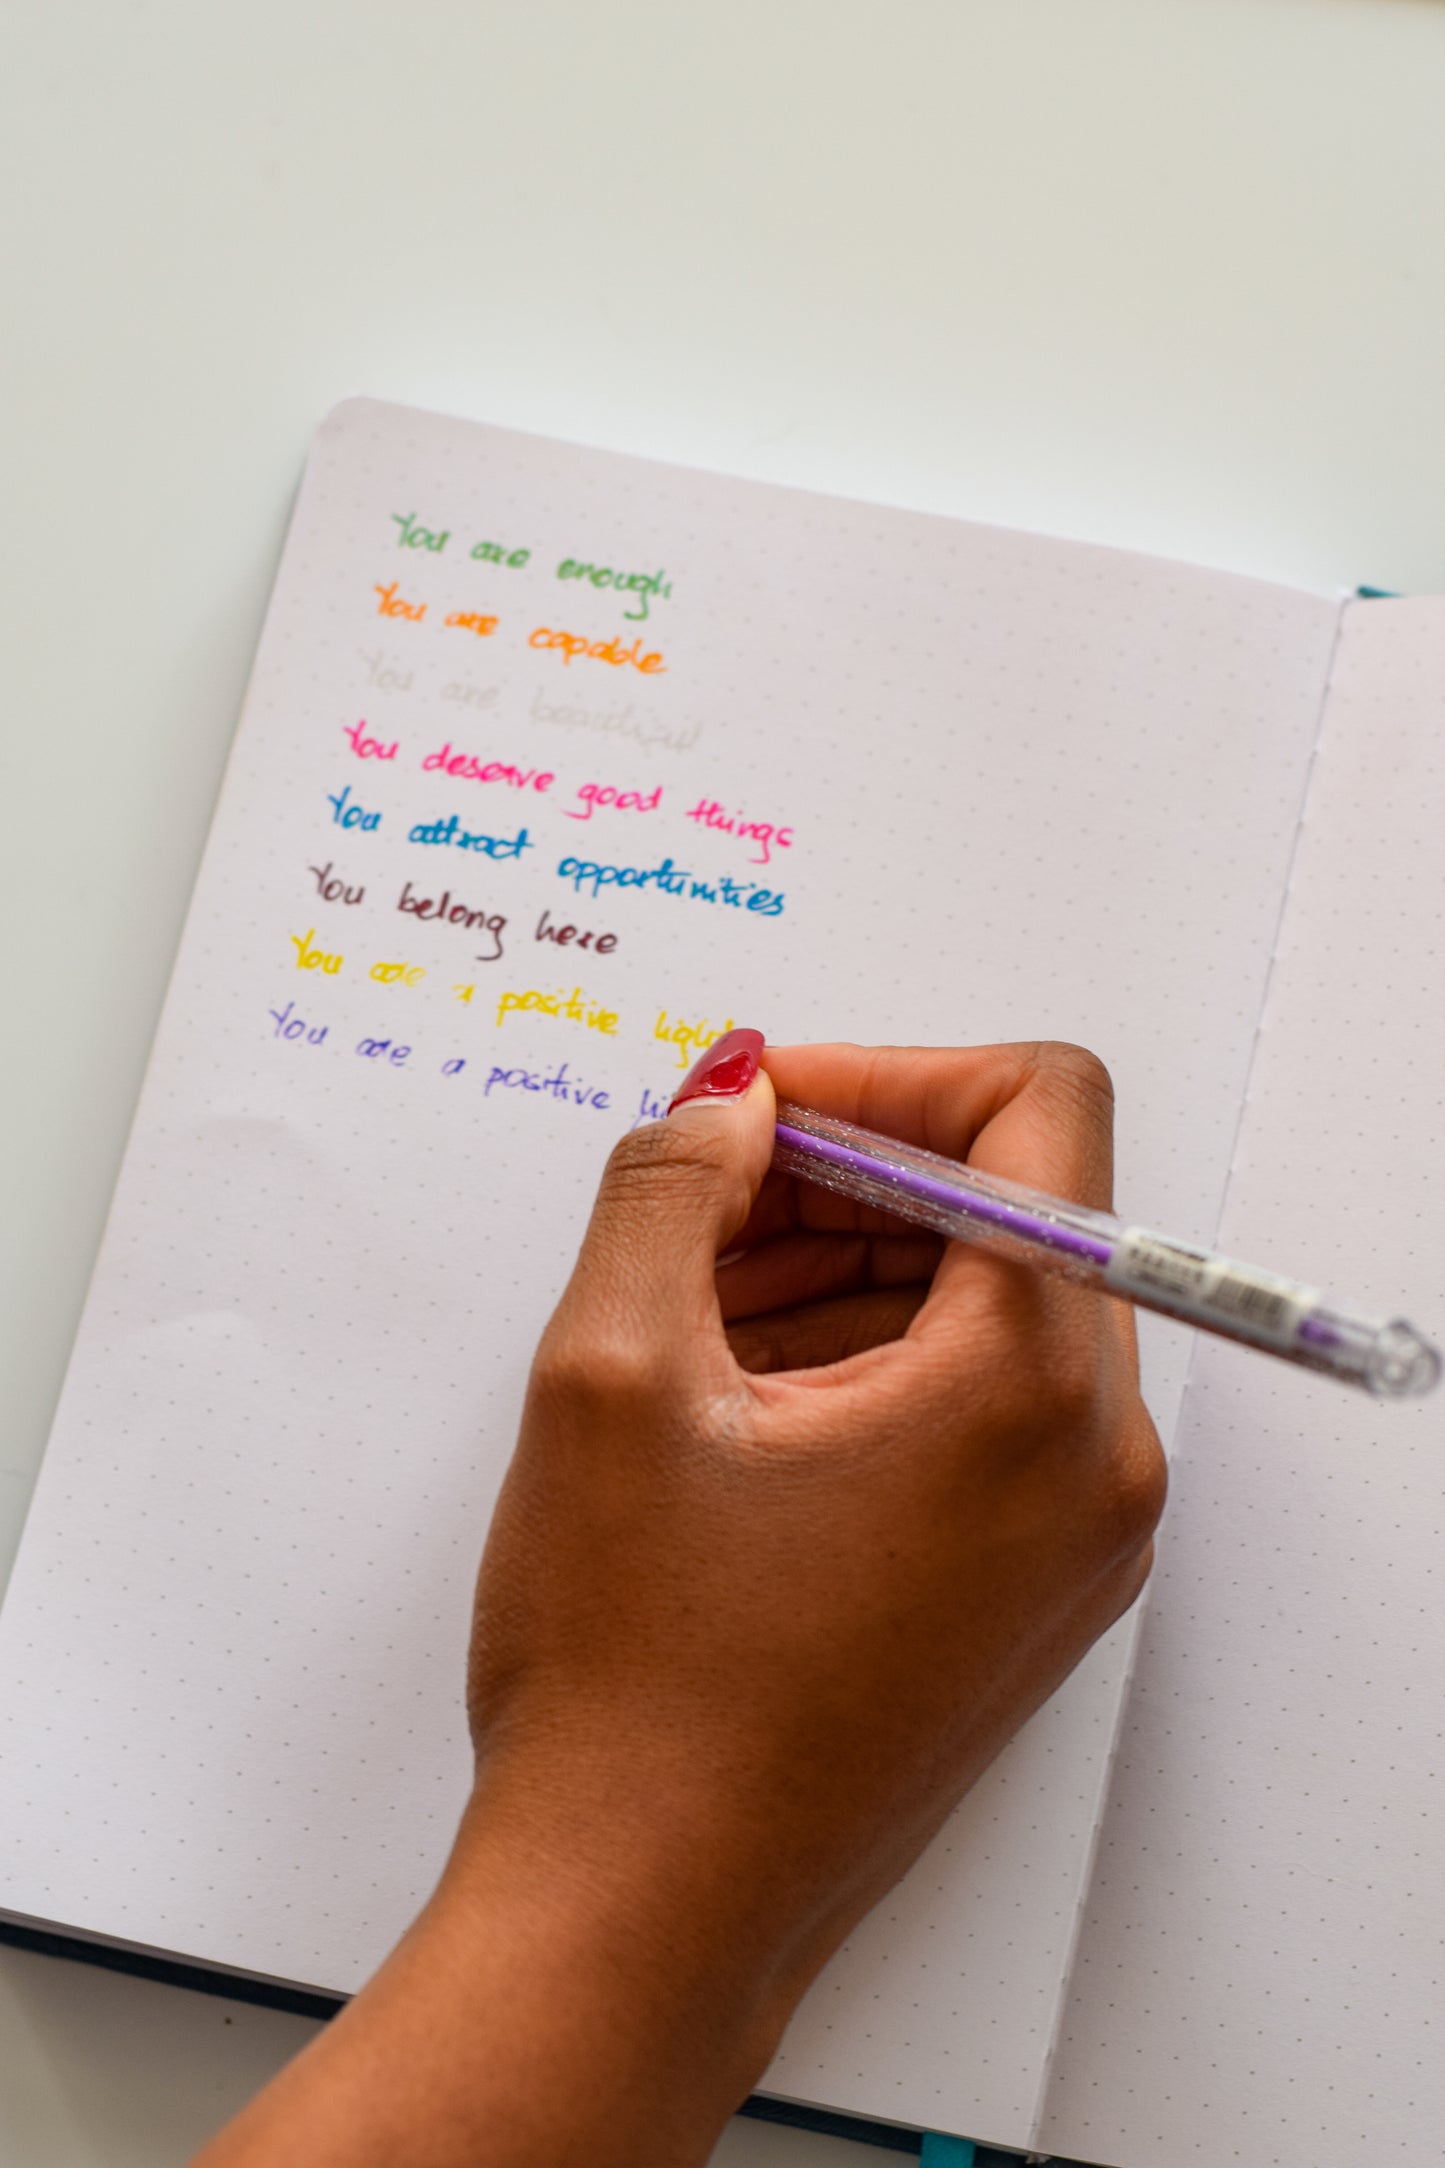 You are enough
You are capable
You are beautiful
You deserve good things
You attract opportunities
You belong here
You are a positive light
You are a positive